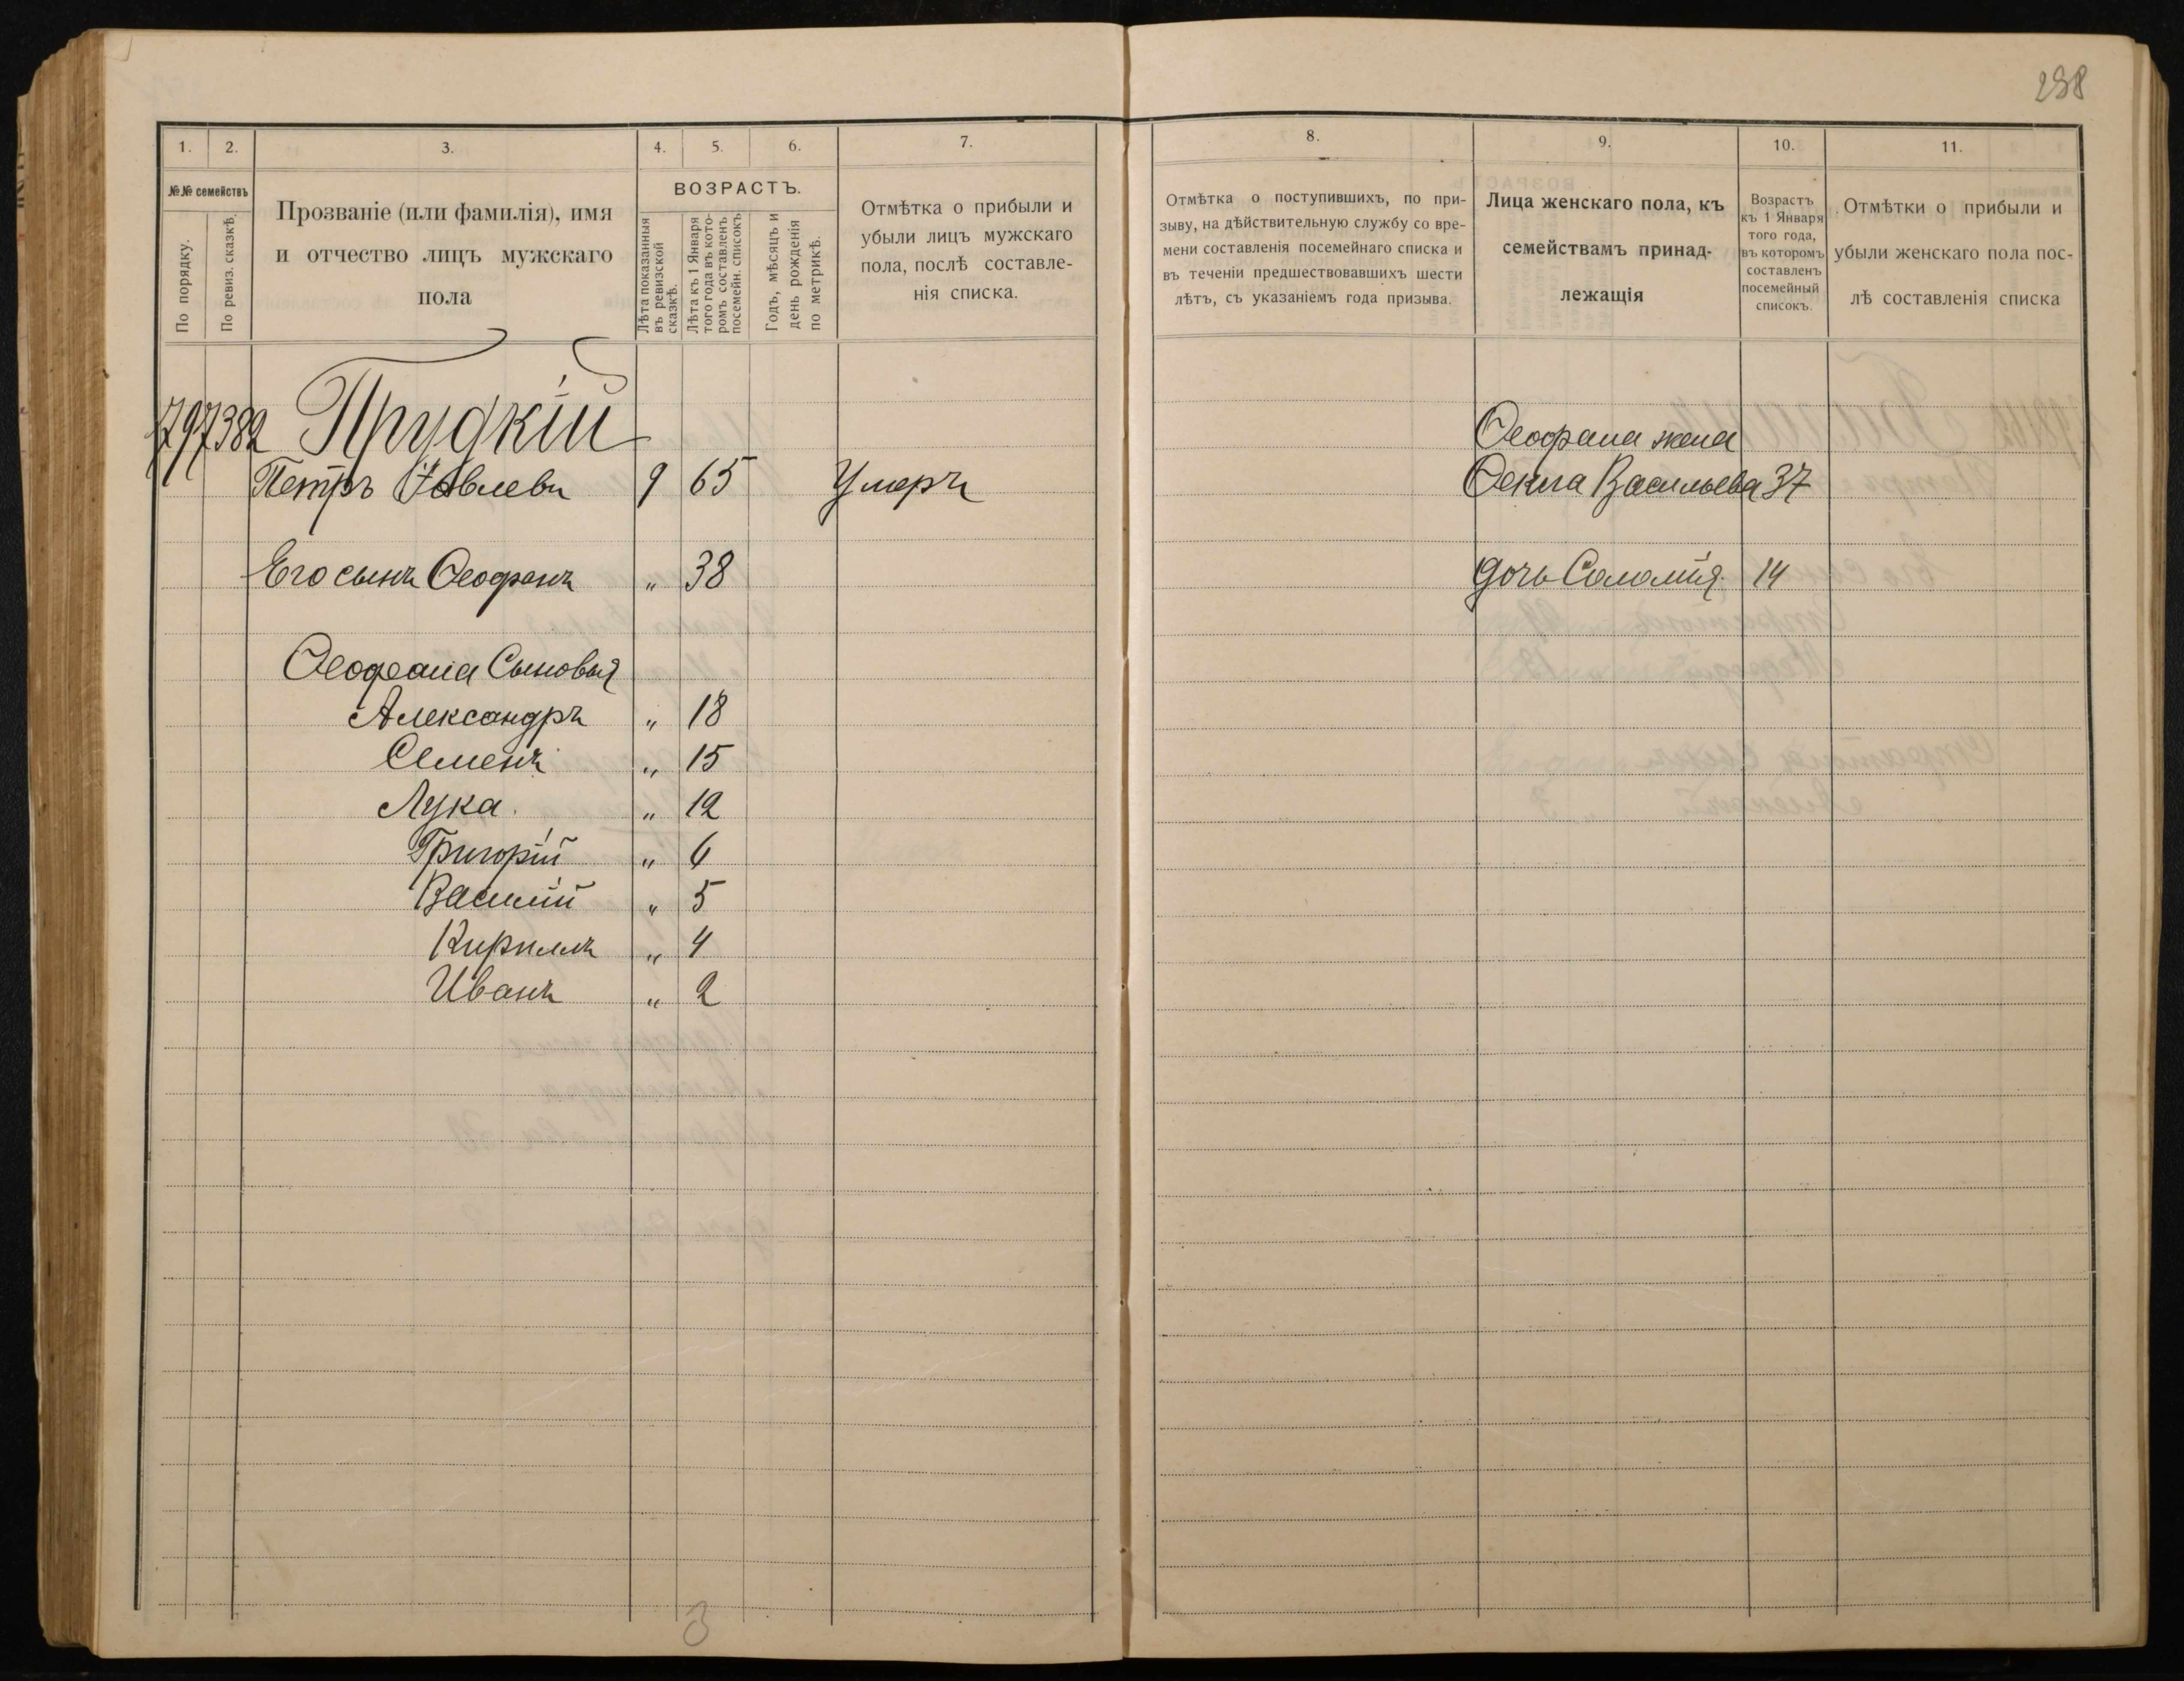 288
1.
2.
3.
4.
5.
6.
7.
№№ семействъ
По порядку.
По ревиз. сказкѣ.
Прозваніе (или фамилія), имя
и отчество лицъ мужскаго
пола
ВОЗРАСТЪ.
Лѣта показанныя
въ ревизской
сказкѣ.
Лѣта къ 1 Января
того года въ кото-
ромъ составленъ
посемейн. списокъ
Годъ, мѣсяцъ и
день рожденія
по метрикѣ.
Отмѣтка о прибыли и
убыли лицъ мужскаго
пола, послѣ составле-
нія списка.
797 382 Прудкій
Петръ 9 65 Умеръ
Его сынъ Ѳеофанъ „ 38
Ѳеофана Сыновья
Александръ „ 18
Семенъ „ 15
Лука. „ 12
Григорій „ 6
Василій „ 5
Кириллъ „ 4
Иванъ „ 2
3
8.
9.
10.
11.
Отмѣтка о поступившихъ, по при-
зыву, на дѣйствительную службу со вре-
мени составленія посемейнаго списка и
въ теченіи предшествовавшихъ шести
лѣтъ, съ указаніемъ года призыва.
Лица женскаго пола, къ
семействамъ принад-
лежащія
Возрастъ
къ 1 Января
того года,
въ которомъ
составленъ
посемейный
списокъ.
Отмѣтки о прибыли и
убыли женскаго пола пос-
лѣ составленія списка
Ѳеофана жена
Ѳекла Васильева 37
дочь Саломія 14